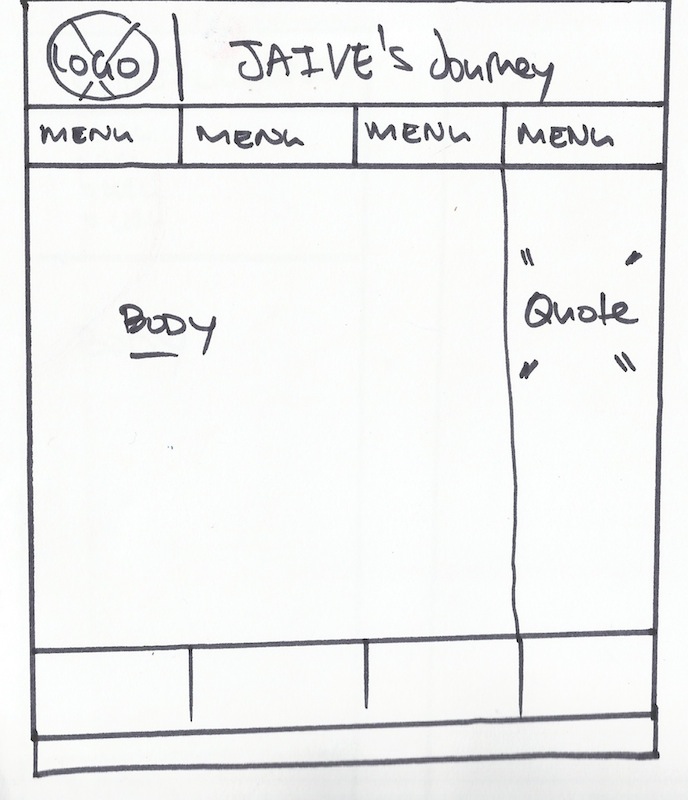 LOGO
JAIVE's Journey
MENU MENU MENU MENU
"
Quote
"
BODY